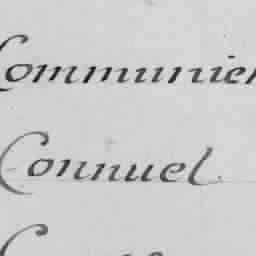 Communier
Connuel